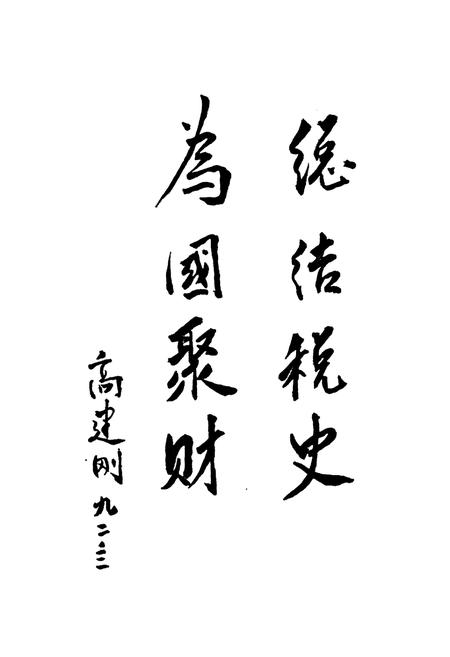 總结税史
為國聚财
高建刚 九二.三